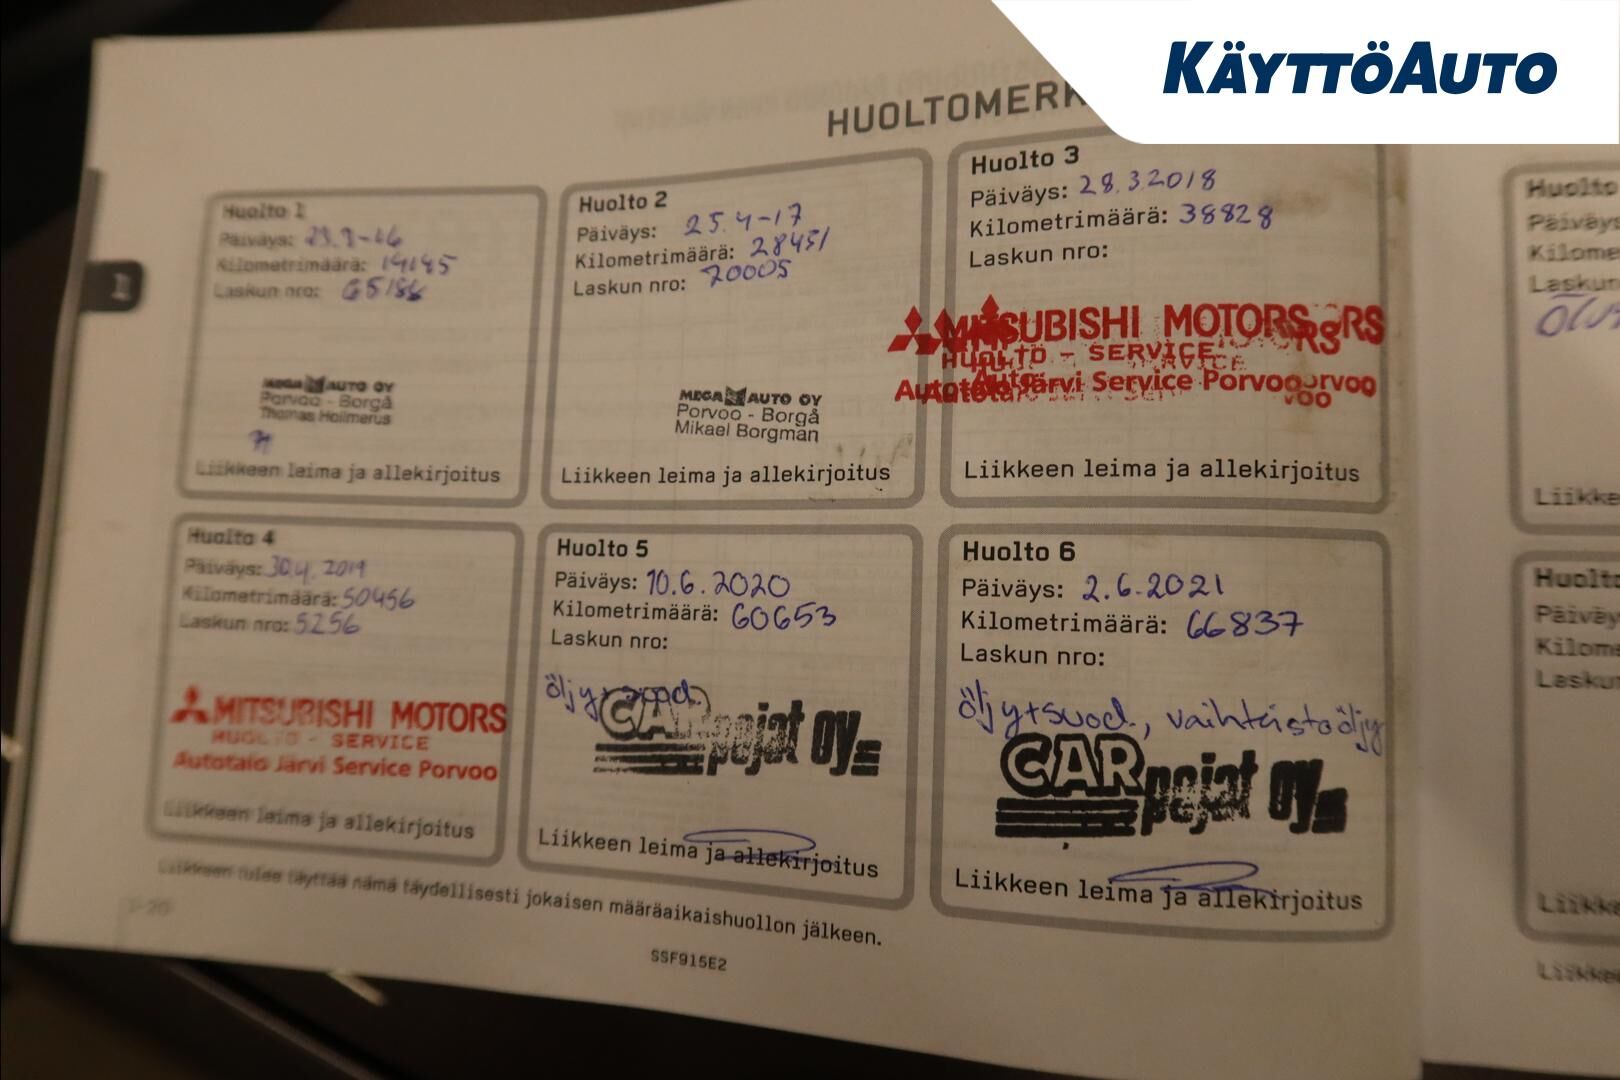 KÄYTTÖAUTO
HUOLTOMERK
Huolto 1
Päiväys:
Kilometrimäärä: 14145
Laskun nro: 65186
MEGA AUTO OY
Porvoo - Borgå
Thomas Holmerus
Liikkeen leima ja allekirjoitus
Huolto 2
Päiväys: 25.4-17
Kilometrimäärä: 28451
Laskun nro: 70005
MEGA AUTO OY
Porvoo - Borgå
Mikael Borgman
Liikkeen leima ja allekirjoitus
Huolto 3
Päiväys: 28.3.2018
Kilometrimäärä: 38828
Laskun nro:
MITSUBISHI MOTORS
HUOLTO - SERVICE
Autotalo Järvi Service Porvoo
Liikkeen leima ja allekirjoitus
Huolto 4
Päiväys: 30.4.2019
Kilometrimäärä: 50456
Laskun nro: 5256
MITSUBISHI MOTORS
HUOLTO - SERVICE
Autotalo Järvi Service Porvoo
Liikkeen leima ja allekirjoitus
Huolto 5
Päiväys: 10.6.2020
Kilometrimäärä: 60653
Laskun nro:
öljy+suod.
CAR pojat oy
Liikkeen leima ja allekirjoitus
Huolto 6
Päiväys: 2.6.2021
Kilometrimäärä: 66837
Laskun nro:
öljy+suod., vaihteistoöljy
CAR pojat oy
Liikkeen leima ja allekirjoitus
Liikkeen tulee täyttää nämä täydellisesti jokaisen määräaikaishuollon jälkeen.
1-20
SSF915E2
Huolto
Päiväys
Kilome
Laskun
Liikke
Huolto
Päiväy
Kilom
Lasku
Liikke
Liikke